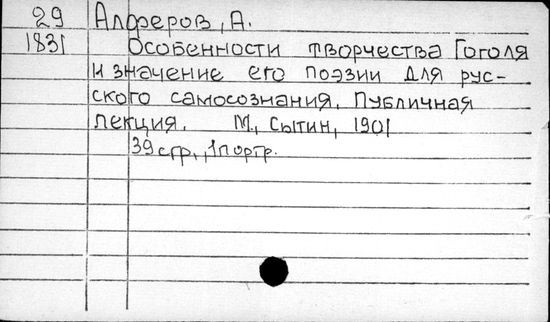 29 Алферов, А.
1831 Особенности творчества Гоголя
и значение его поэзии для рус-
ского самосознания. Публичная
лекция. М., Сытин, 1901
39 стр., 1 портр.